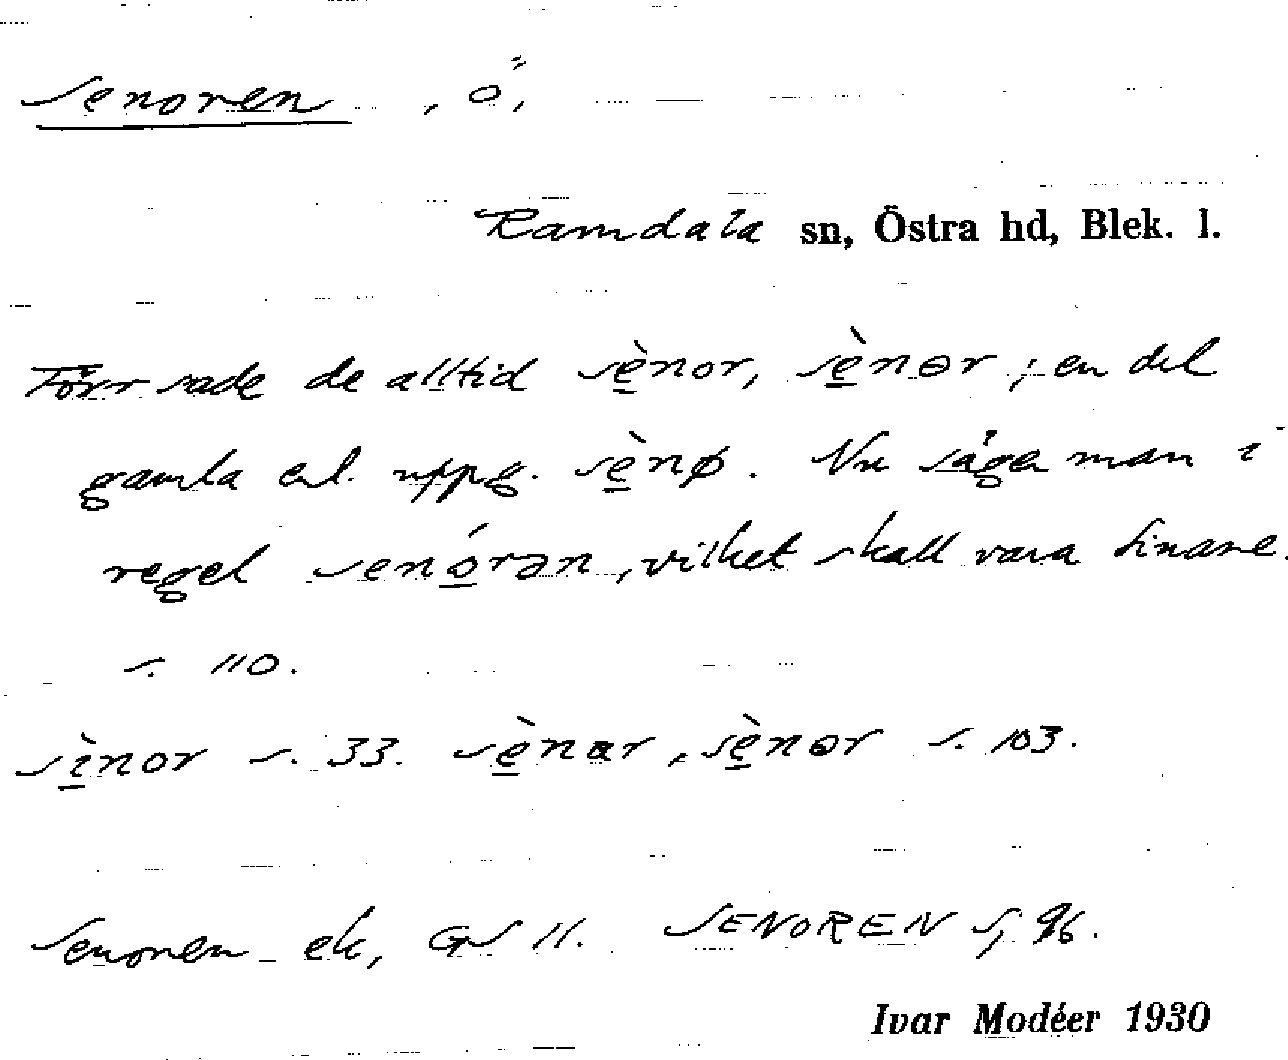 Senoren, ö,
Ramdala sn, Östra hd, Blek. l.
Förr sade de alltid sè̱nor, sè̱nər; en del
gamla enl. uppg. sè̱nø. Nu säger man i
regel senó̱rən, vilket skall vara finare.
s. 110.
sì̱nor s. 33. sè̱nar, sè̱nər s. 103.
Senoren ek, GS 11. SENOREN S, 96.
Ivar Modéer 1930